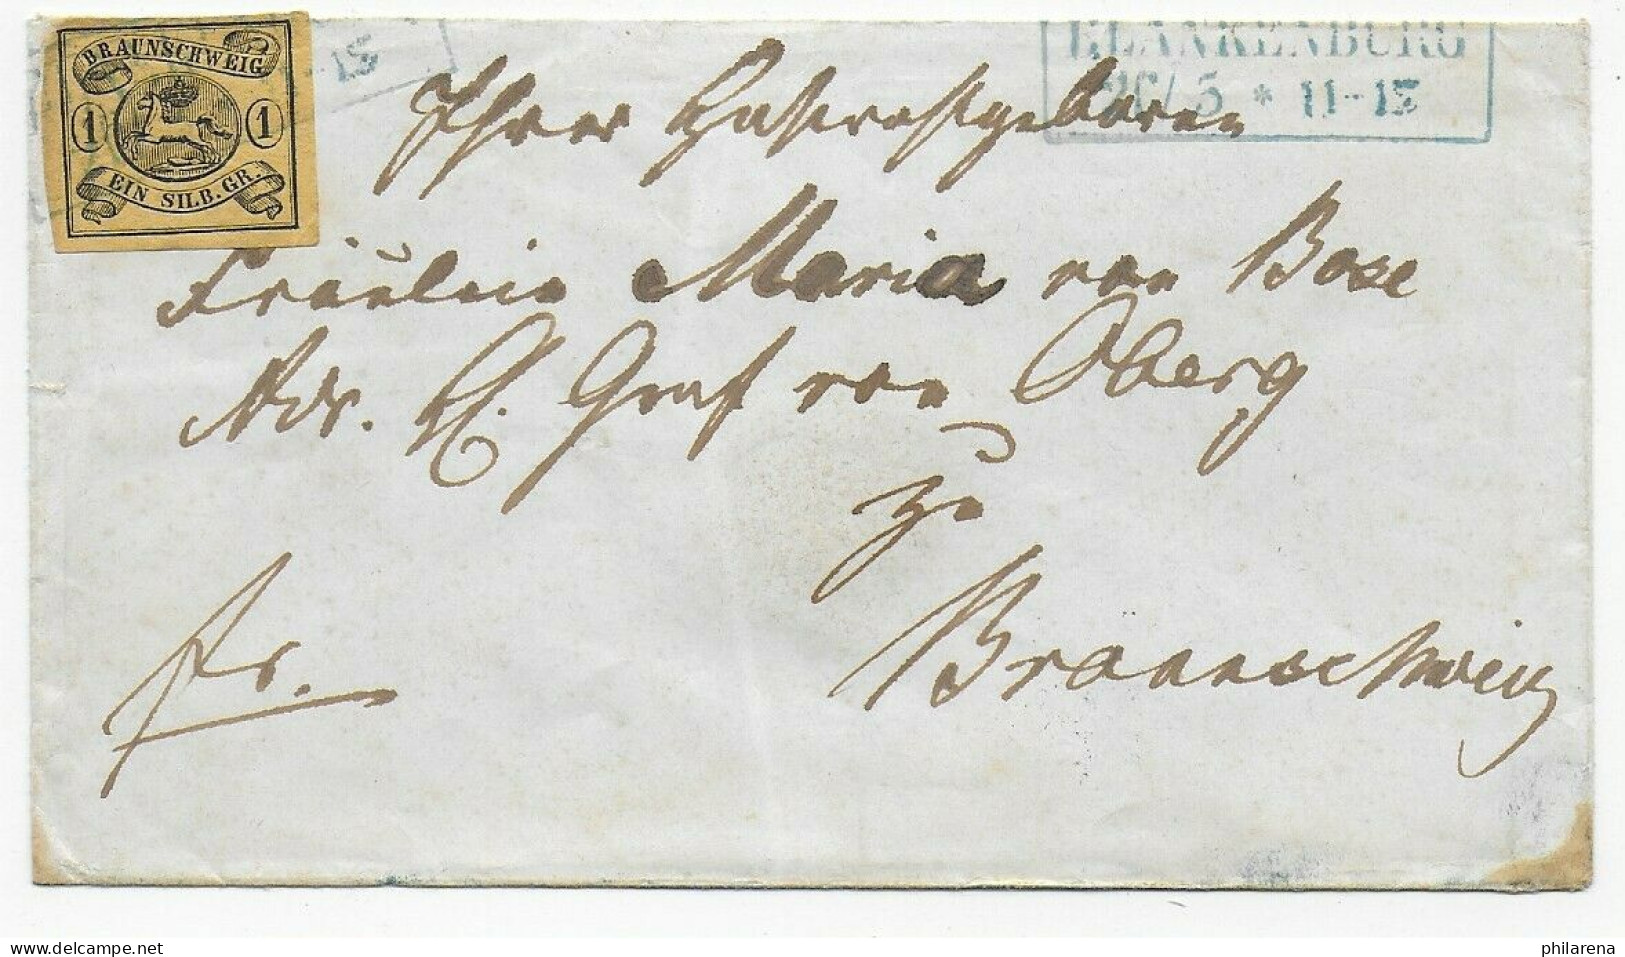 BRAUNSCHWEIG
1 1
EIN SILB.GR.
-12
BLANKENBURG
26/5 * 11-12
Ihrer
Fräulein Maria von Bose
Adr. H. Graf von Oberg
zu
Braunschweig
fr.
delcampe.net
philarena